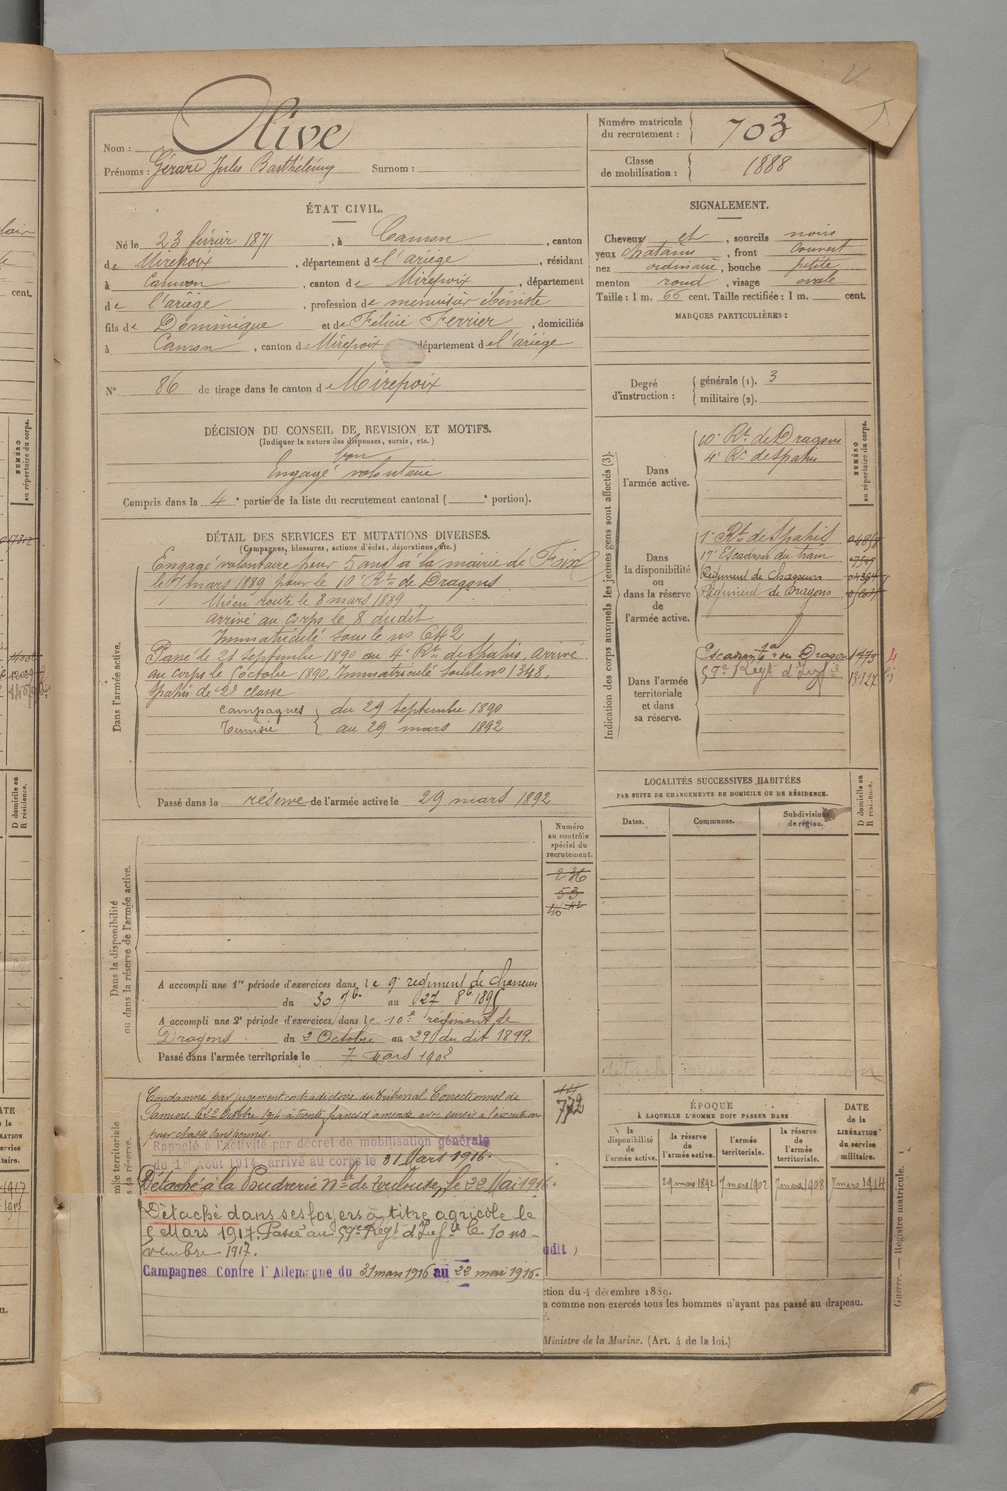 Nom : Olive
Prénoms : Gérard Jules Barthélémy Surnom :
Numéro matricule du recrutement : 703
Classe de mobilisation : 1888
ÉTAT CIVIL.
Né le 23 février 1871, à Camon, canton
de Mirepoix, département de l'ariège, résidant
à Camon, canton de Mirepoix, département
de l'ariège, profession de menuisier ébéniste
fils de Dominique et de Félicie Ferrier, domiciliés
à Camon, canton de Mirepoix, département de l'ariège
N° 86 de tirage dans le canton de Mirepoix
SIGNALEMENT.
Cheveux et, sourcils noirs
yeux chatains, front couvert
nez ordinaire, bouche petite
menton rond, visage ovale
Taille : 1 m. 66 cent. Taille rectifiée : 1 m. cent.
MARQUES PARTICULIÈRES :
Degré d'instruction : générale (1). 3
militaire (2).
DÉCISION DU CONSEIL DE REVISION ET MOTIFS.
(Indiquer la nature des dispenses, sursis, etc.)
bon
Engagé volontaire
Compris dans la 4e partie de la liste du recrutement cantonal ( e portion).
DÉTAIL DES SERVICES ET MUTATIONS DIVERSES.
(Campagnes, blessures, actions d'éclat, décorations, etc.)
Dans l'armée active.
Engagé volontaire pour 5 ans à la mairie de Foix
le 7 mars 1889 pour le 10e Rt de Dragons
Mis en route le 8 mars 1889
arrivé au corps le 8 dudit
Immatriculé sous le no 642
Passé le 21 septembre 1890 au 4e Rt de spahis, arrivé
au corps le octobre 1890, Immatriculé sous le no 1348,
spahi de 2e classe
Campagnes du 29 septembre 1890
Tunisie au 29 mars 1892
Passé dans la réserve de l'armée active le 29 mars 1892
Indication des corps auxquels les jeunes gens sont affectés (3).
NUMÉRO au répertoire du corps.
Dans l'armée active.
10e Rt de Dragons
4e Rt de Spahis
Dans la disponibilité ou dans la réserve de l'armée active.
1er Rt de Spahis
17e Escadron du train
Régiment de Chasseurs
Régiment de Dragons
Dans l'armée territoriale et dans sa réserve.
Escadron de Dragons
57e Régt d'Infie
LOCALITÉS SUCCESSIVES HABITÉES
PAR SUITE DE CHANGEMENTS DE DOMICILE OU DE RÉSIDENCE.
Dates. Communes. Subdivisions de région. D domicile ou R résidence.
Numéro au contrôle spécial du recrutement.
236
53
40 42
Dans la disponibilité ou dans la réserve de l'armée active.
A accompli une 1re période d'exercices dans le 9e régiment de Chasseurs
du 30 7bre au 27 8bre
A accompli une 2e période d'exercices dans le 10e régiment de
Dragons du 2 Octobre au 29 du dit 1899.
Passé dans l'armée territoriale le 7 mars 1902
772
Condamné par jugement contradictoire du Tribunal Correctionnel de
Pamiers, le 12 Octobre à trente francs d'amende avec sursis à l'exécution
pour chasse sans permis.
Rappelé à l'activité par décret de mobilisation générale
du 1er Août 1914, arrivé au corps le 31 Mars 1916.
Détaché à la Poudrerie Nle de Toulouse, le 22 Mai 1916.
Détaché dans ses foyers à titre agricole le
5 Mars 1917. Passé au 57e Régt d'Infie le 10 no-
vembre 1917.
Campagnes Contre l'Allemagne du 31 mars 1916 au 22 mai 1916.
ÉPOQUE
À LAQUELLE L'HOMME DOIT PASSER DANS
la disponibilité de l'armée active. la réserve de l'armée active. l'armée territoriale. la réserve de l'armée territoriale.
DATE de la LIBÉRATION du service militaire.
29 mars 1892 7 mars 1902 7 mars 1908 7 mars 1914
udit )
ction du 4 décembre 1889.
a comme non exercés tous les hommes n'ayant pas passé au drapeau.
Ministre de la Marine. (Art. 4 de la loi.)
Guerre. — Registre matricule.